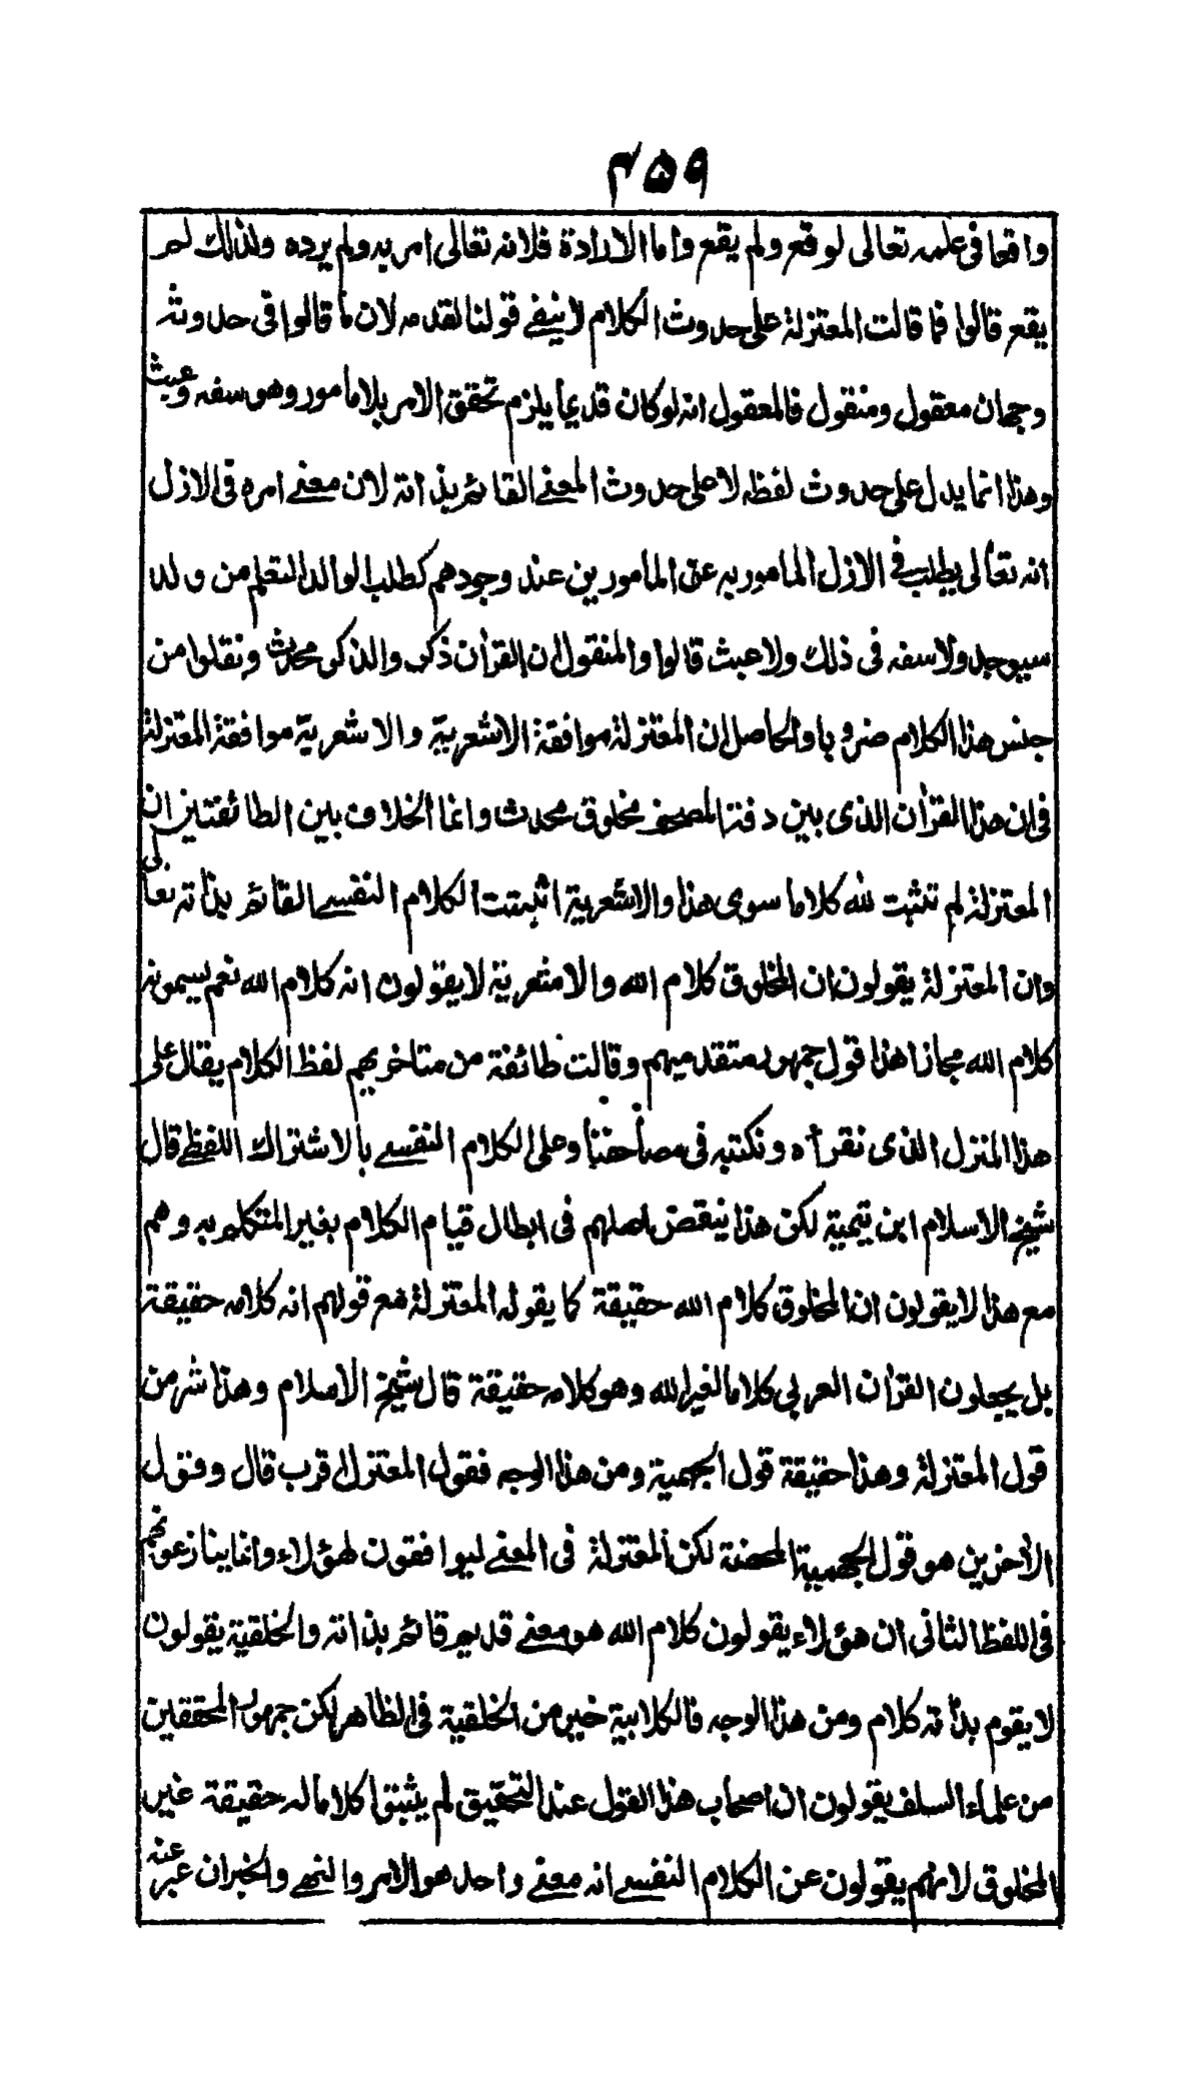 ٤٥٩
واقعا فى علمه تعالى لوقع ولم يقع واما الارادة فلانه تعالى امر به ولم يرده ولذلك لم
يقع قالوا فما قالت المعتزلة على حدوث الكلام لا ينفے قولنا لقدمه لان ما قالوا فى حدوثه
وجهان معقول ومنقول فالمعقول انه لو كان قديما يلزم تحقق الامر بلا مامور وهو سفه وعبث
وهذا انما يدل على حدوث لفظه لا على حدوث المعنے القائم بذاته لان معنے امره فى الازل
انه تعالى يطلب فے الازل المامور به عن المامورين عند وجودهم كطلب الوالد التعلم من ولد
سيوجد ولا سفه فى ذلك ولا عبث قالوا والمنقول ان القرآن ذكر والذكر محدث ونقلوا من
جنس هذا الكلام ضروبا والحاصل ان المعتزلة موافقة الاشعرية والاشعرية موافقة المعتزلة
فى ان هذا القرآن الذى بين دفتے المصحف مخلوق محدث وانما الخلاف بين الطائفتين ان
المعتزلة لم تثبت لله كلاما سوى هذا والاشعرية اثبتت الكلام النفسے القائم بذاته تعالى
وان المعتزلة يقولون ان المخلوق كلام الله والاشعرية لا يقولون انه كلام الله نعم يسمونه
كلام الله مجازا هذا قول جمهور متقدميهم وقالت طائفة من متاخريهم لفظ الكلام يقال على
هذا المنزل الذى نقرأه ونكتبه فى مصاحفنا وعلى الكلام النفسے بالاشتراك اللفظے قال
شيخ الاسلام ابن تيمية لكن هذا ينقض اصلهم فى ابطال قيام الكلام بغير المتكلم به وهم
مع هذا لا يقولون ان المخلوق كلام الله حقيقة كما يقوله المعتزلة مع قولهم انه كلامه حقيقة
بل يجعلون القرآن العربى كلاما لغير الله وهو كلامه حقيقة قال شيخ الاسلام وهذا شر من
قول المعتزلة وهذا حقيقة قول الجهمية ومن هذا الوجه فقول المعتزلة اقرب قال وقول
الآخرين هو قول الجهمية المحضة لكن المعتزلة فى المعنے ليوافقون لهؤلاء وانما ينازعونهم
فى اللفظ الثانى ان هؤلاء يقولون كلام الله هو معنے قديم قائم بذاته والخلقية يقولون
لا يقوم بذاته كلام ومن هذا الوجه فالكلابية خير من الخلقية فى الظاهر لكن جمهور المحققين
من علماء السلف يقولون ان اصحاب هذا القول عند التحقيق لم يثبتوا كلاما له حقيقة غير
المخلوق لانهم يقولون عن الكلام النفسے انه معنے واحد هو الامر والنهے والخبر ان عبر عنه